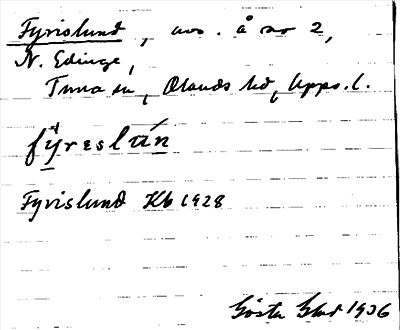 Fyrislund, avs. å nr 2,
N. Edinge,
Tuna sn, Olands hd, Upps. l.
fýreslun
Fyrislund Kb 1928
Gösta 1936